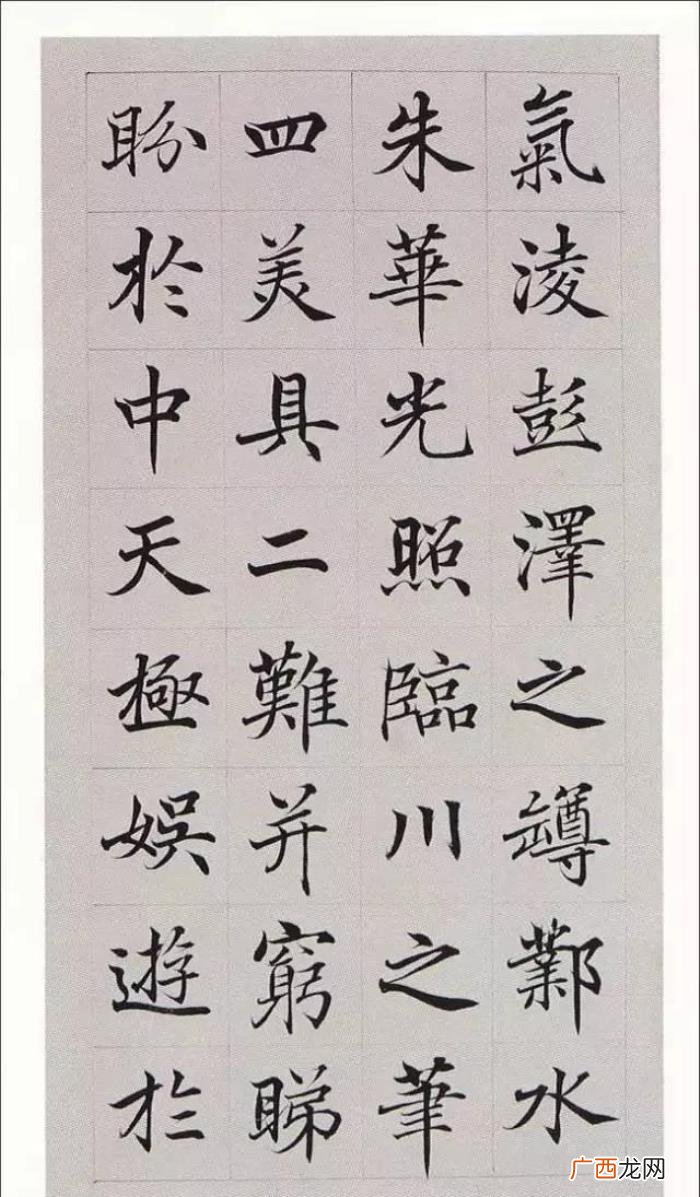 氣淩彭澤之罇鄴水
朱華光照臨川之筆
四美具二難并窮睇
盼於中天極娛遊於
广西龙网